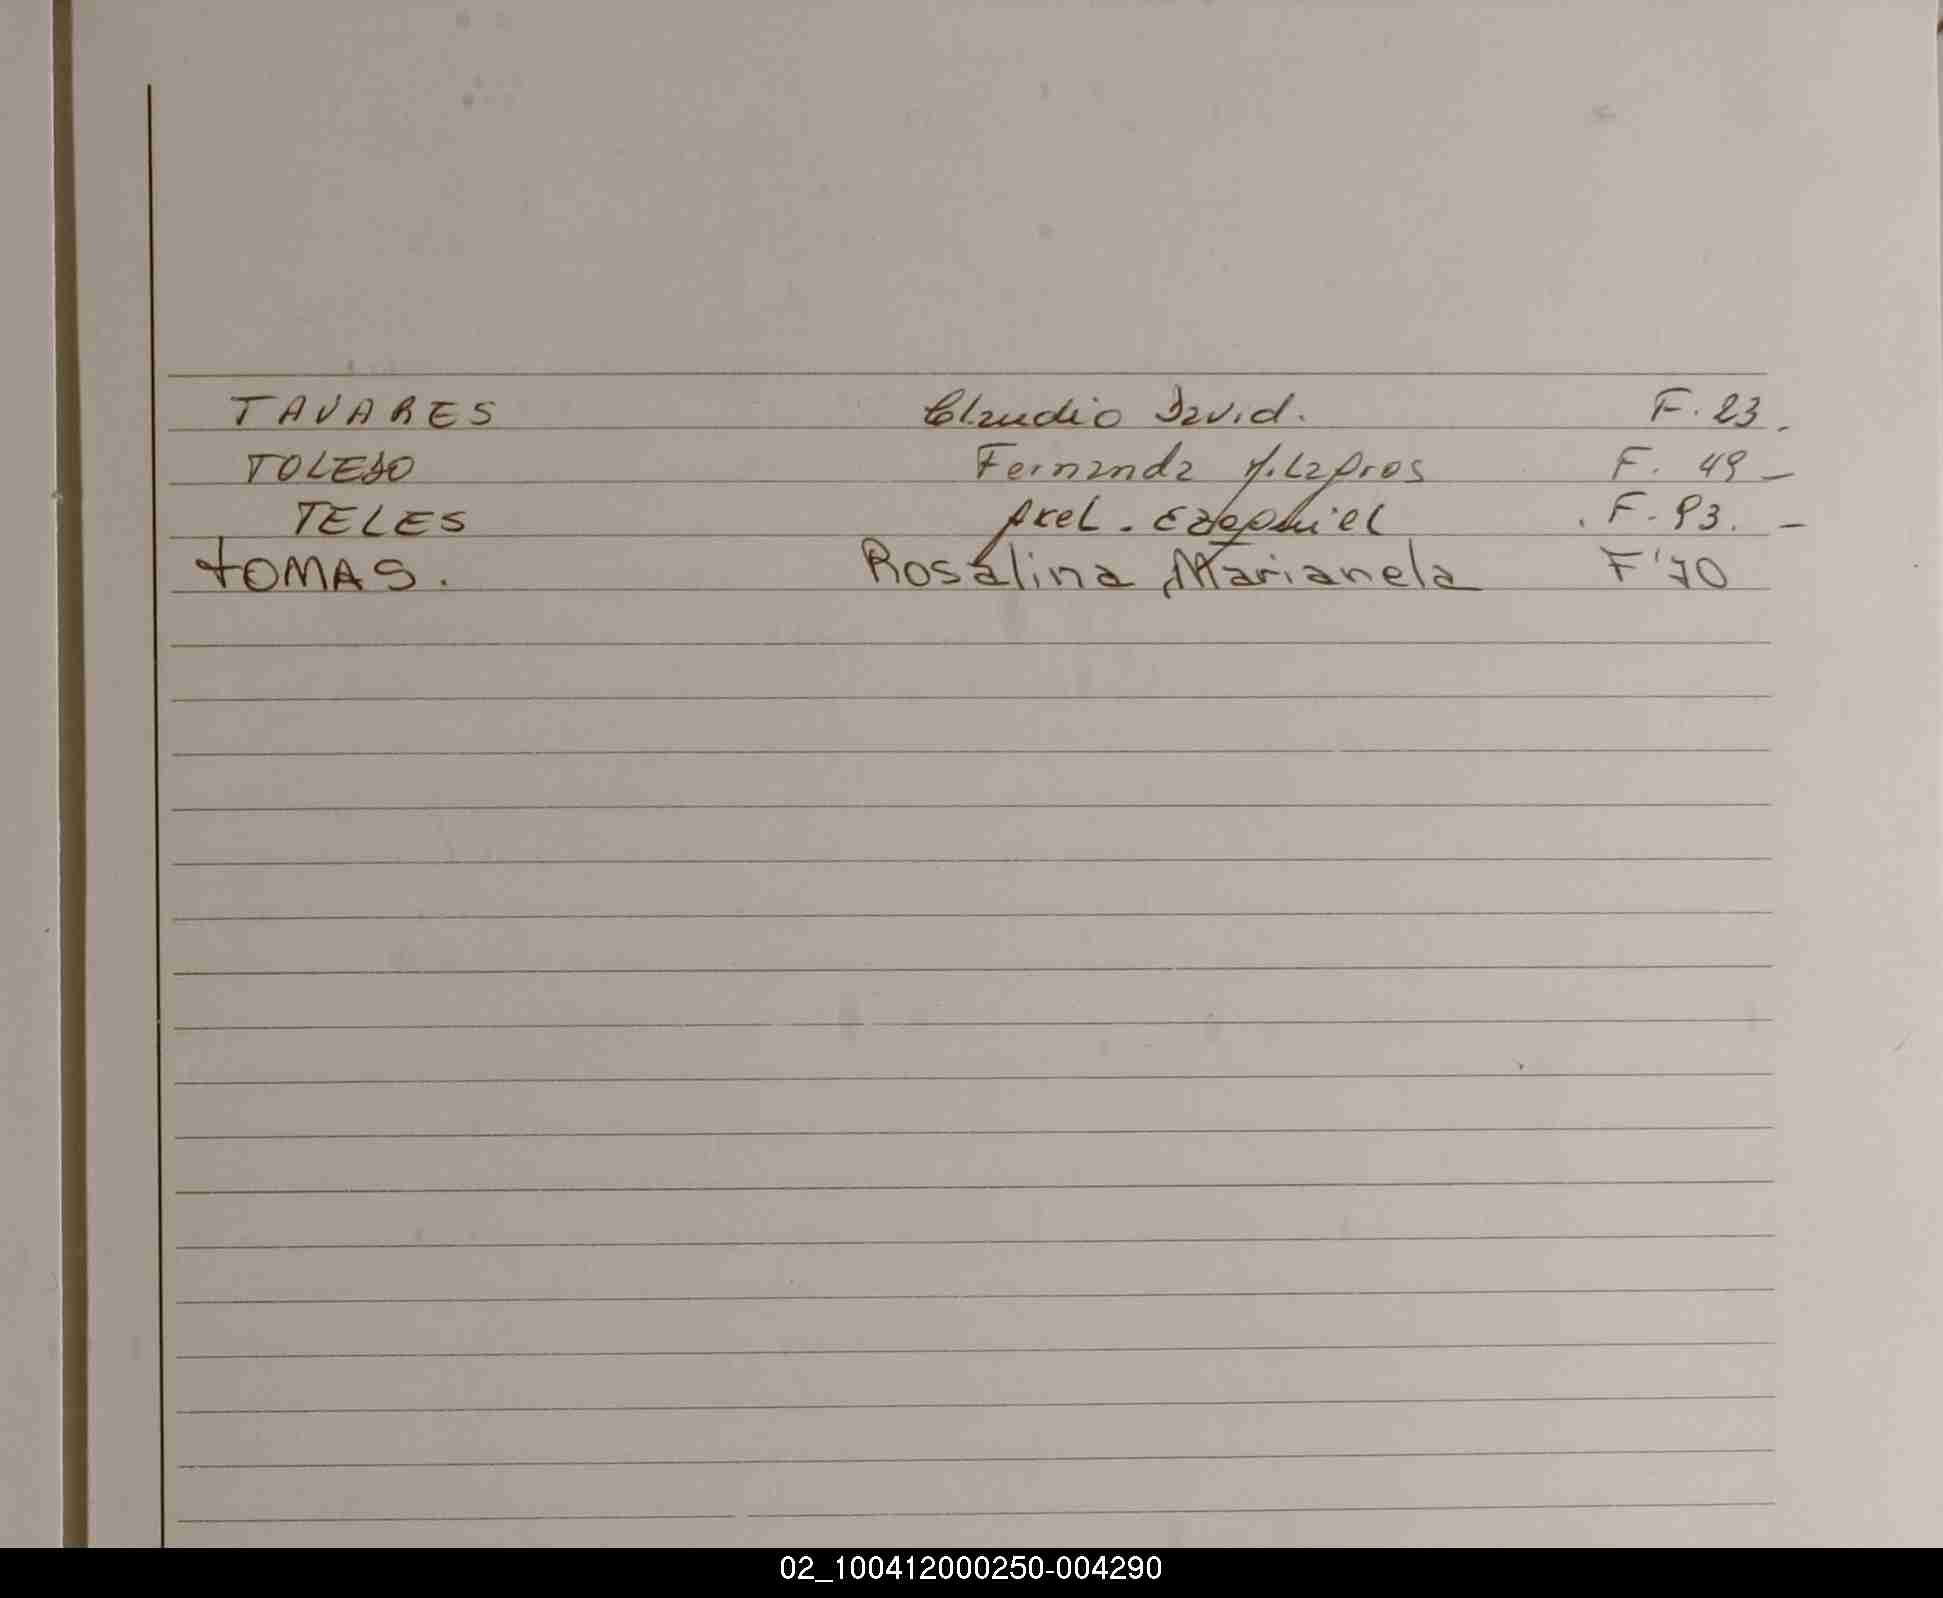 TAVARES Claudio David. F. 23.
TOLEDO Fernanda Milagros F. 49 -
TELES Axel. Ezequiel . F. 93. -
TOMAS. Rosalina Marianela F' 70
02_100412000250-004290